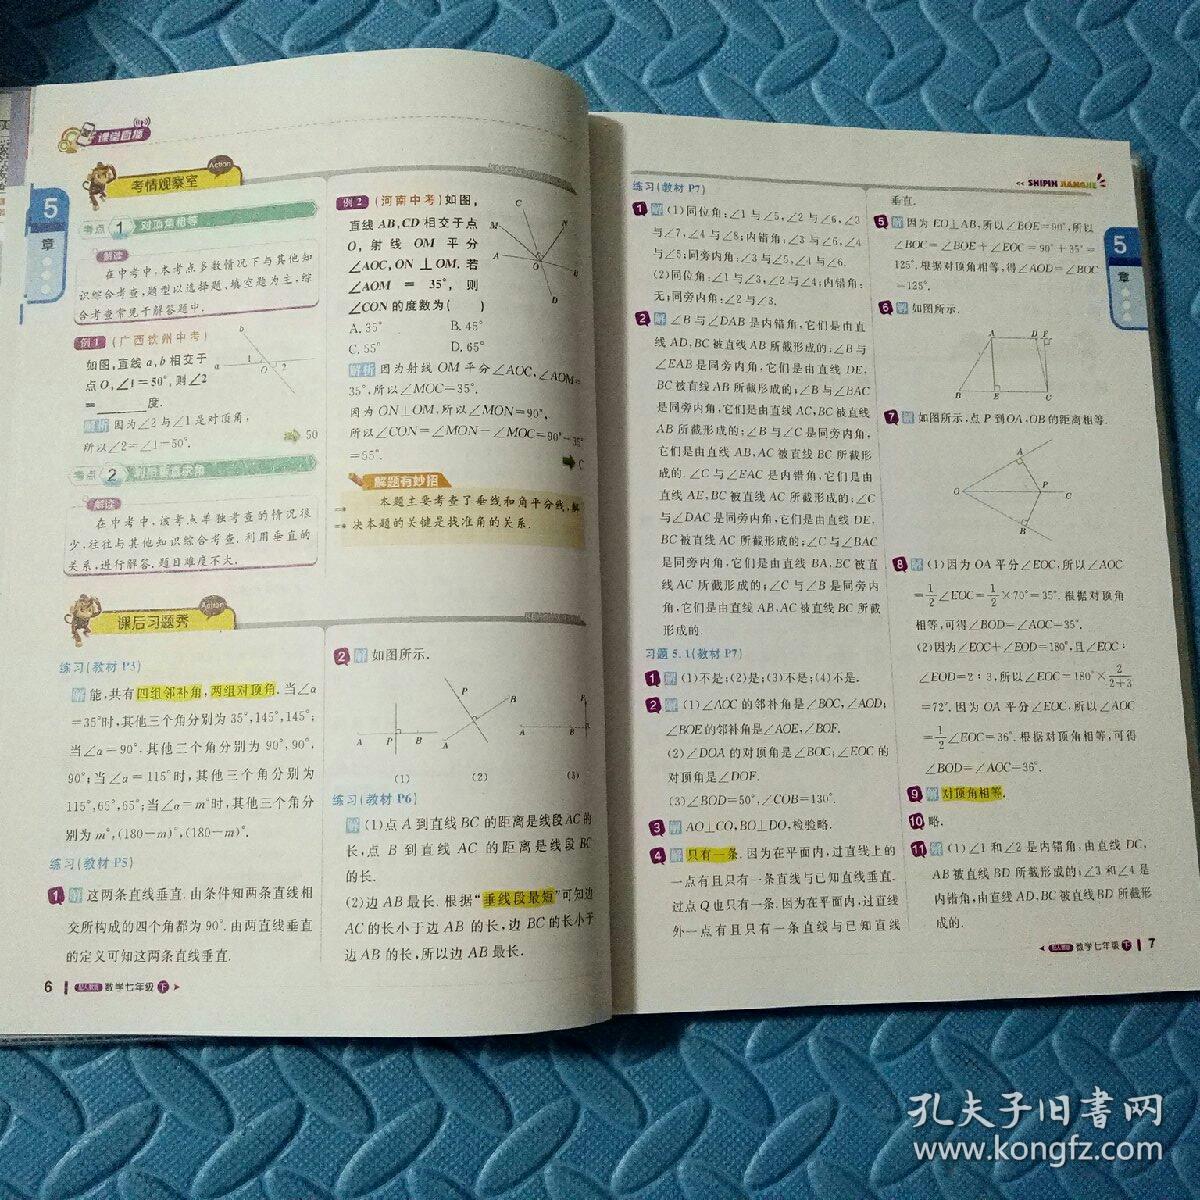 课堂直播
考情观察室
Action
5
章
考点 1 对顶角相等
解读
在中考中,本考点多数情况下与其他知
识综合考查,题型以选择题、填空题为主,综
合考查常见于解答题中.
例1 (广西钦州中考)
如图,直线a,b相交于
点O,∠1=50°,则∠2
=______度.
b
a 1 O 2
解析 因为∠2与∠1是对顶角,
所以∠2=∠1=50°.
50
考点 2
解读
在中考中,该考点单独考查的情况很
少,往往与其他知识综合考查.利用垂直的
关系,进行解答.题目难度不大.
例2 (河南中考)如图,
直线AB,CD相交于点
O,射线 OM 平分
∠AOC,ON⊥OM.若
∠AOM = 35°, 则
∠CON的度数为( )
C
M N
A O B
D
A.35° B.45°
C.55° D.65°
解析 因为射线OM平分∠AOC,∠AOM=
35°,所以∠MOC=35°.
因为ON⊥OM,所以∠MON=90°,
所以∠CON=∠MON-∠MOC=90°-35°
=55°.
C
解题有妙招
本题主要考查了垂线和角平分线,解
决本题的关键是找准角的关系.
课后习题秀
Action
练习(教材P3)
解 能,共有四组邻补角,两组对顶角.当∠α
=35°时,其他三个角分别为35°,145°,145°;
当∠α=90°.其他三个角分别为90°,90°,
90°;当∠α=115°时,其他三个角分别为
115°,65°,65°;当∠α=m°时,其他三个角分
别为m°,(180-m)°,(180-m)°.
练习(教材P5)
1 解 这两条直线垂直.由条件知两条直线相
交所构成的四个角都为90°.由两直线垂直
的定义可知这两条直线垂直.
2 解 如图所示.
A P B
P B A
A B
(1) (2) (3)
练习(教材P6)
解 (1)点A到直线BC的距离是线段AC的
长,点B到直线AC的距离是线段BC
的长.
(2)边AB最长.根据“垂线段最短”可知边
AC的长小于边AB的长,边BC的长小于
边AB的长,所以边AB最长.
6 数学七年级 下
SHIPIN JIANGJIE
练习(教材P7)
1 解 (1)同位角:∠1与∠5,∠2与∠6,∠3
与∠7,∠4与∠8;内错角:∠3与∠6,∠4
与∠5;同旁内角:∠3与∠5,∠4与∠6.
(2)同位角:∠1与∠3,∠2与∠4;内错角:
无;同旁内角:∠2与∠3.
2 解 ∠B与∠DAB是内错角,它们是由直
线AD,BC被直线AB所截形成的;∠B与
∠EAB是同旁内角,它们是由直线DE,
BC被直线AB所截形成的;∠B与∠BAC
是同旁内角,它们是由直线AC,BC被直线
AB所截形成的;∠B与∠C是同旁内角,
它们是由直线AB,AC被直线BC所截形
成的.∠C与∠EAC是内错角,它们是由
直线AE,BC被直线AC所截形成的;∠C
与∠DAC是同旁内角,它们是由直线DE,
BC被直线AC所截形成的;∠C与∠BAC
是同旁内角,它们是由直线BA,BC被直
线AC所截形成的;∠C与∠B是同旁内
角,它们是由直线AB,AC被直线BC所截
形成的.
习题5.1(教材P7)
1 解 (1)不是;(2)是;(3)不是;(4)不是.
2 解 (1)∠AOC的邻补角是∠BOC,∠AOD;
∠BOE的邻补角是∠AOE,∠BOF.
(2)∠DOA的对顶角是∠BOC;∠EOC的
对顶角是∠DOF.
(3)∠BOD=50°,∠COB=130°.
3 解 AO⊥CO,BO⊥DO,检验略.
4 解 只有一条.因为在平面内,过直线上的
一点有且只有一条直线与已知直线垂直.
过点Q也只有一条.因为在平面内,过直线
外一点有且只有一条直线与已知直线
垂直.
5 解 因为EO⊥AB,所以∠BOE=90°,所以
∠BOC=∠BOE+∠EOC=90°+35°=
125°.根据对顶角相等,得∠AOD=∠BOC
=125°.
6 解 如图所示.
A D F
B E C
7 解 如图所示,点P到OA,OB的距离相等.
A
O P C
B
8 解 (1)因为OA平分∠EOC,所以∠AOC
=1/2∠EOC=1/2×70°=35°.根据对顶角
相等,可得∠BOD=∠AOC=35°.
(2)因为∠EOC+∠EOD=180°,且∠EOC:
∠EOD=2:3,所以∠EOC=180°×2/(2+3)
=72°.因为OA平分∠EOC,所以∠AOC
=1/2∠EOC=36°.根据对顶角相等,可得
∠BOD=∠AOC=36°.
9 解 对顶角相等.
10 略.
11 解 (1)∠1和∠2是内错角.由直线DC,
AB被直线BD所截形成的;∠3和∠4是
内错角,由直线AD,BC被直线BD所截形
成的.
5
章
数学七年级 下 7
孔夫子旧书网
www.kongfz.com